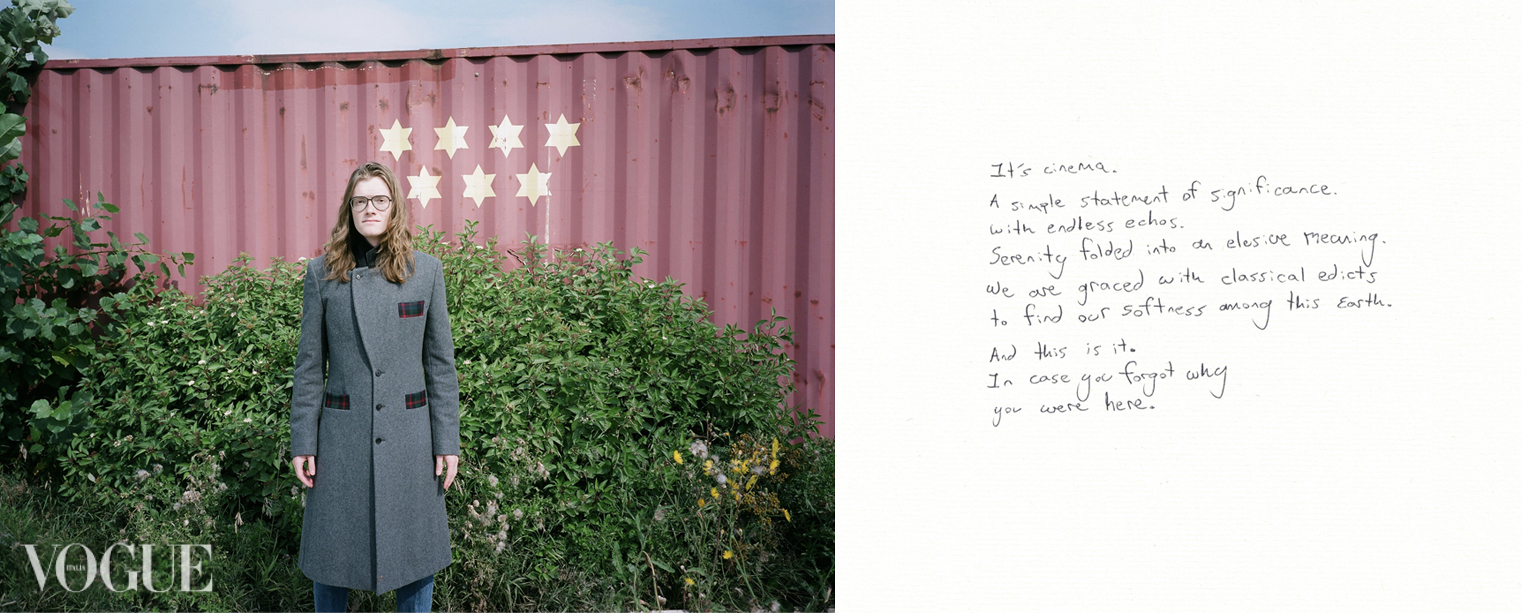 VOGUE
ITALIA
It's cinema.
A simple statement of significance.
with endless echos.
Serenity folded into an elusive meaning.
we are graced with classical edicts
to find our softness among this Earth.
And this is it.
In case you forgot why
you were here.